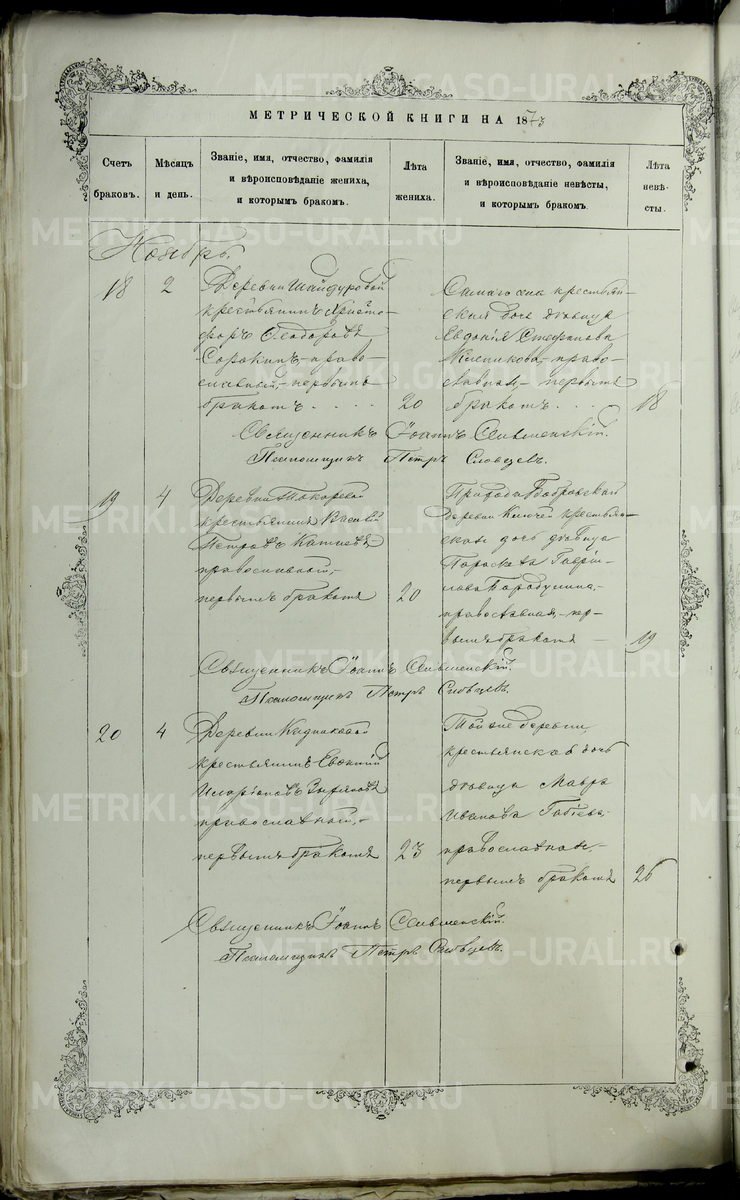 МЕТРИЧЕСКОЙ КНИГИ НА 1873
Счетъ браковъ.
Мѣсяцъ и день.
Званіе, имя, отчество, фамилія
и вѣроисповѣданіе жениха,
и которымъ бракомъ.
Лѣта жениха.
Званіе, имя, отчество, фамилія
и вѣроисповѣданіе невѣсты,
и которымъ бракомъ.
Лѣта невѣ-
сты.
Ноябрь.
18 2
Деревни Шайдуровой
крестьянинъ Христо-
форъ Ѳеодоровъ
Сорокинъ право-
славный, первымъ
бракомъ 20
Самаго села крестьян-
ская дочь дѣвица
Евдокія Стефанова
право-
славная, первымъ
бракомъ 18
Священникъ Іоаннъ
Псаломщикъ Петръ Словцевъ.
19 4
Деревни Токаревой
крестьянинъ Василій
Петровъ
православный,
первымъ бракомъ 20
Прихода Бобровскаго
деревни Ключей крестьян-
ская дочь дѣвица
Параскева Гаврі-
лова
православная, пер-
вымъ бракомъ 19
Священникъ Іоаннъ
Псаломщикъ Петръ Словцевъ.
20 4
Деревни
крестьянинъ Евгеній
Иларіоновъ Зыряновъ
православный,
первымъ бракомъ 23
Той же деревни,
крестьянская дочь
дѣвица Мавра
Иванова
православная,
первымъ бракомъ 26
Священникъ Іоаннъ
Псаломщикъ Петръ Словцевъ.
METRIKI.GASO-URAL.RU